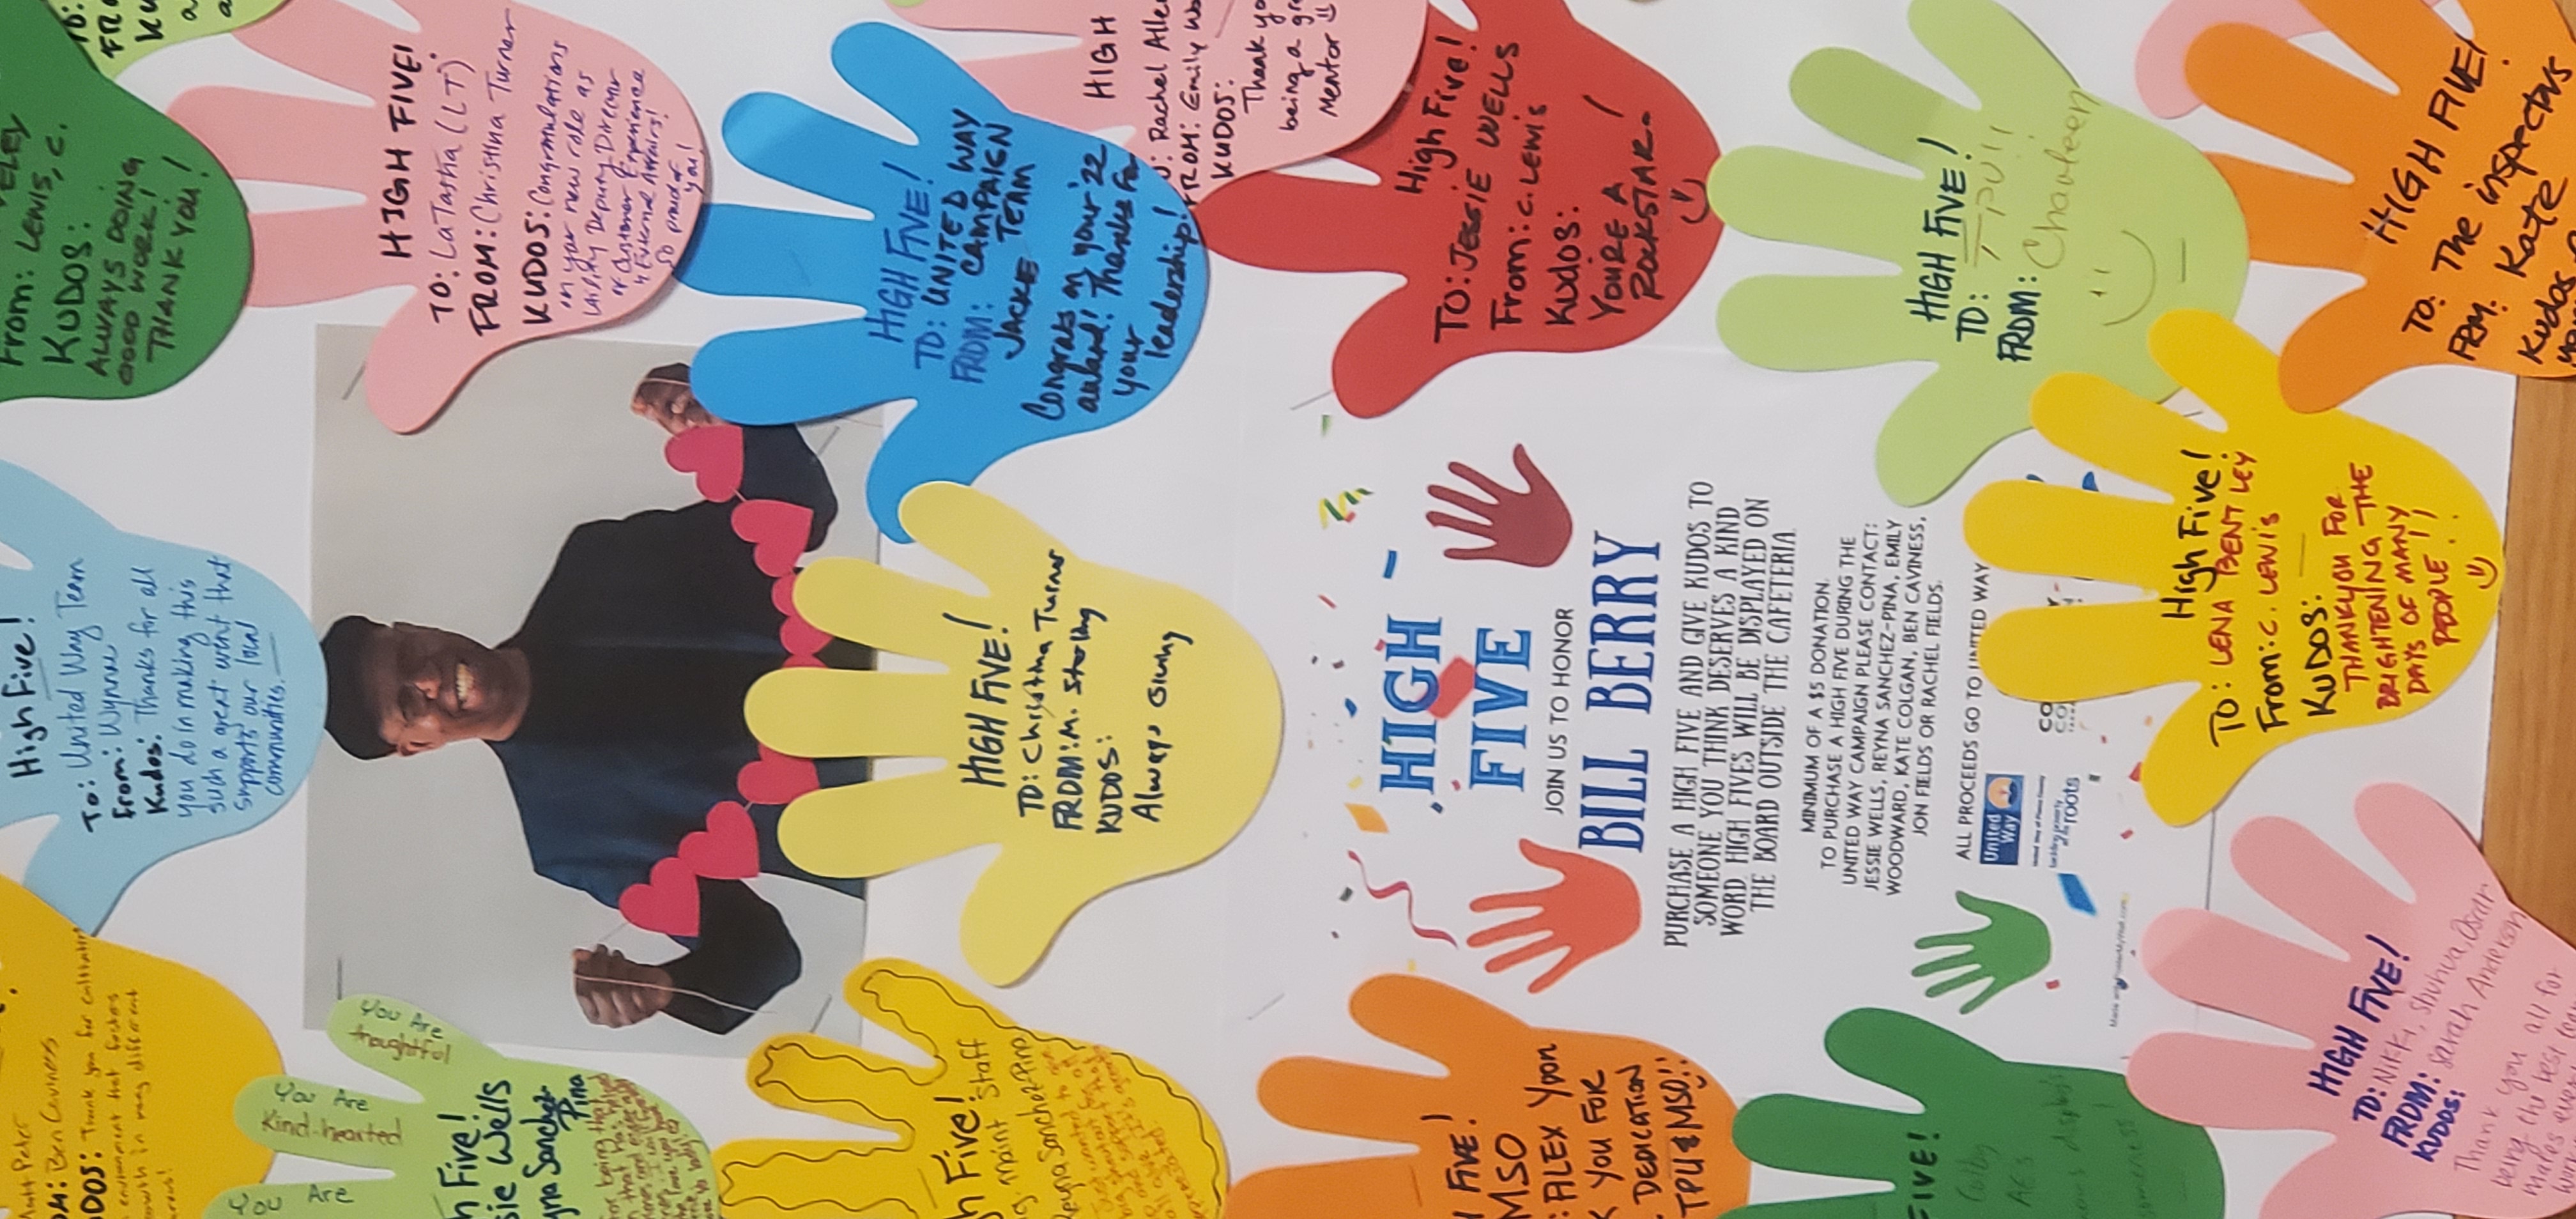 From: LEWIS, C.
KUDOS:
ALWAYS DOING
GOOD WORK!
THANK YOU!
HIGH FIVE!
TO: LaTasha (LT)
FROM: Christina Turner
KUDOS: Congratulations
in your new role as
Utility Deputy Director
of Customer Experience
& External Affairs!
So proud of
you!
HIGH FIVE!
TO: UNITED WAY
CAMPAIGN
TEAM
FROM:
JACKIE
Congrats on your '22
award! Thanks for
your
leadership!
HIGH
Rachel Alle
FROM: Emily Wo
KUDOS:
Thank yo
being a gr
Mentor
High Five!
To: JESSIE WELLS
From: C. LEWIS
KUDOS:
YOU'RE A
ROCKSTAR!
HIGH FIVE!
TO: TPU!!
FROM: Charleen
HIGH FIVE!
TO: The inspectors
FRM: Kate
Kudos
High Five!
To: United Way Team
From: Wynne
Kudos: Thanks for all
you do in making this
such a great event that
supports our local
communities.
HIGH FIVE!
TO: Christina Turner
FROM: M. Sterling
KUDOS:
Always Giving
HIGH -
FIVE
JOIN US TO HONOR
BILL BERRY
PURCHASE A HIGH FIVE AND GIVE KUDOS TO
SOMEONE YOU THINK DESERVES A KIND
WORD HIGH FIVES WILL BE DISPLAYED ON
THE BOARD OUTSIDE THE CAFETERIA
MINIMUM OF A $5 DONATION.
TO PURCHASE A HIGH FIVE DURING THE
UNITED WAY CAMPAIGN PLEASE CONTACT:
JESSIE WELLS, REYNA SANCHEZ-PINA, EMILY
WOODWARD, KATE COLGAN, BEN CAVINESS,
JON FIELDS OR RACHEL FIELDS.
ALL PROCEEDS GO TO UNITED WAY
United
Way
roots
High Five!
To: LENA BENTLEY
From: C. LEWIS
KUDOS:
THANK YOU FOR
BRIGHTENING THE
DAYS OF MANY
PEOPLE!!
Matt Peter
Ben Caviness
KUDOS: Thank you for cultivating
environment that fosters
growth in many different
You Are
thoughtful
You Are
Kind-hearted
You Are
Five!
sie Wells
Reyna Sanchez
Pina
Five!
maint Staff
Reyna Sanchez-Pina
FIVE!
MSO
ALEX YOON
YOU FOR
DEDICATION
TPU & MSO!!
FIVE!
HIGH FIVE!
TO: Nikki, Shuhua, Oscar
FROM: Sarah Anderson
KUDOS:
Thank you all for
being the best